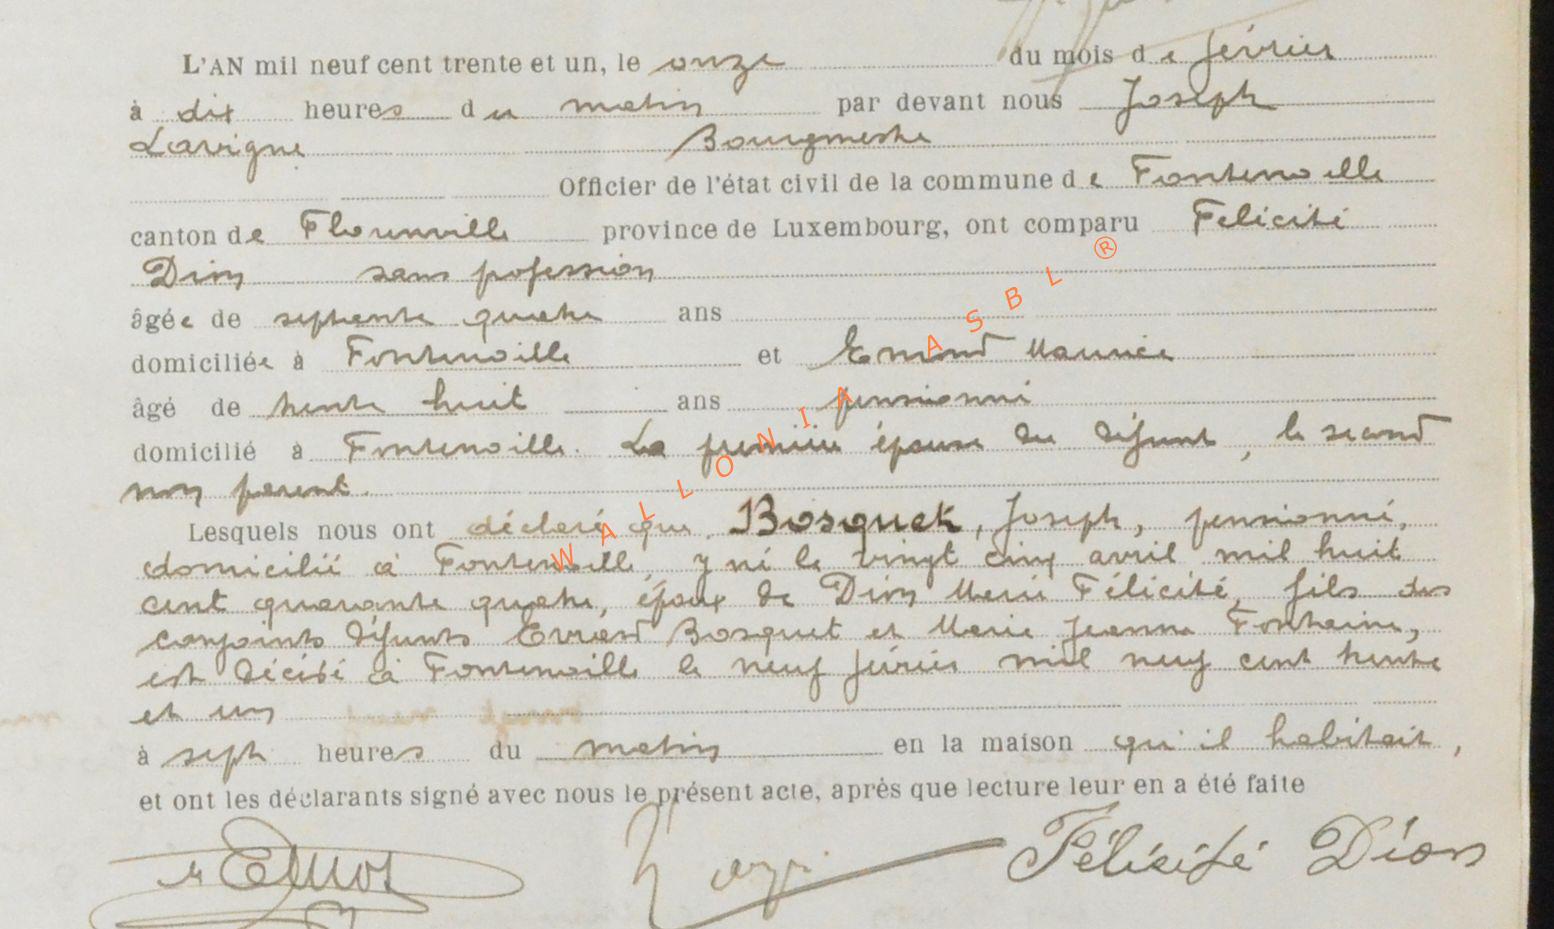 L'AN mil neuf cent trente et un, le onze du mois de février
à dix heures du matin par devant nous Joseph
Lavigne Bourgmestre
Officier de l'état civil de la commune de Fontenoille
canton de Florenville province de Luxembourg, ont comparu Félicité
Dion sans profession
âgée de septante quatre ans
domiciliée à Fontenoille et Emond Maurice
âgé de trente huit ans pensionné
domicilié à Fontenoille. La première épouse du défunt, le second
non parent.
Lesquels nous ont déclaré que Bosquet, Joseph, pensionné,
domicilié à Fontenoille, y né le vingt cinq avril mil huit
cent quarante quatre, époux de Dion Marie Félicité, fils des
conjoints défunts Evrard Bosquet et Marie Jeanne Fontaine,
est décédé à Fontenoille le neuf février mil neuf cent trente
et un
à sept heures du matin en la maison qu'il habitait,
et ont les déclarants signé avec nous le présent acte, après que lecture leur en a été faite
Félicité Dion
WALLONIA ASBL ®